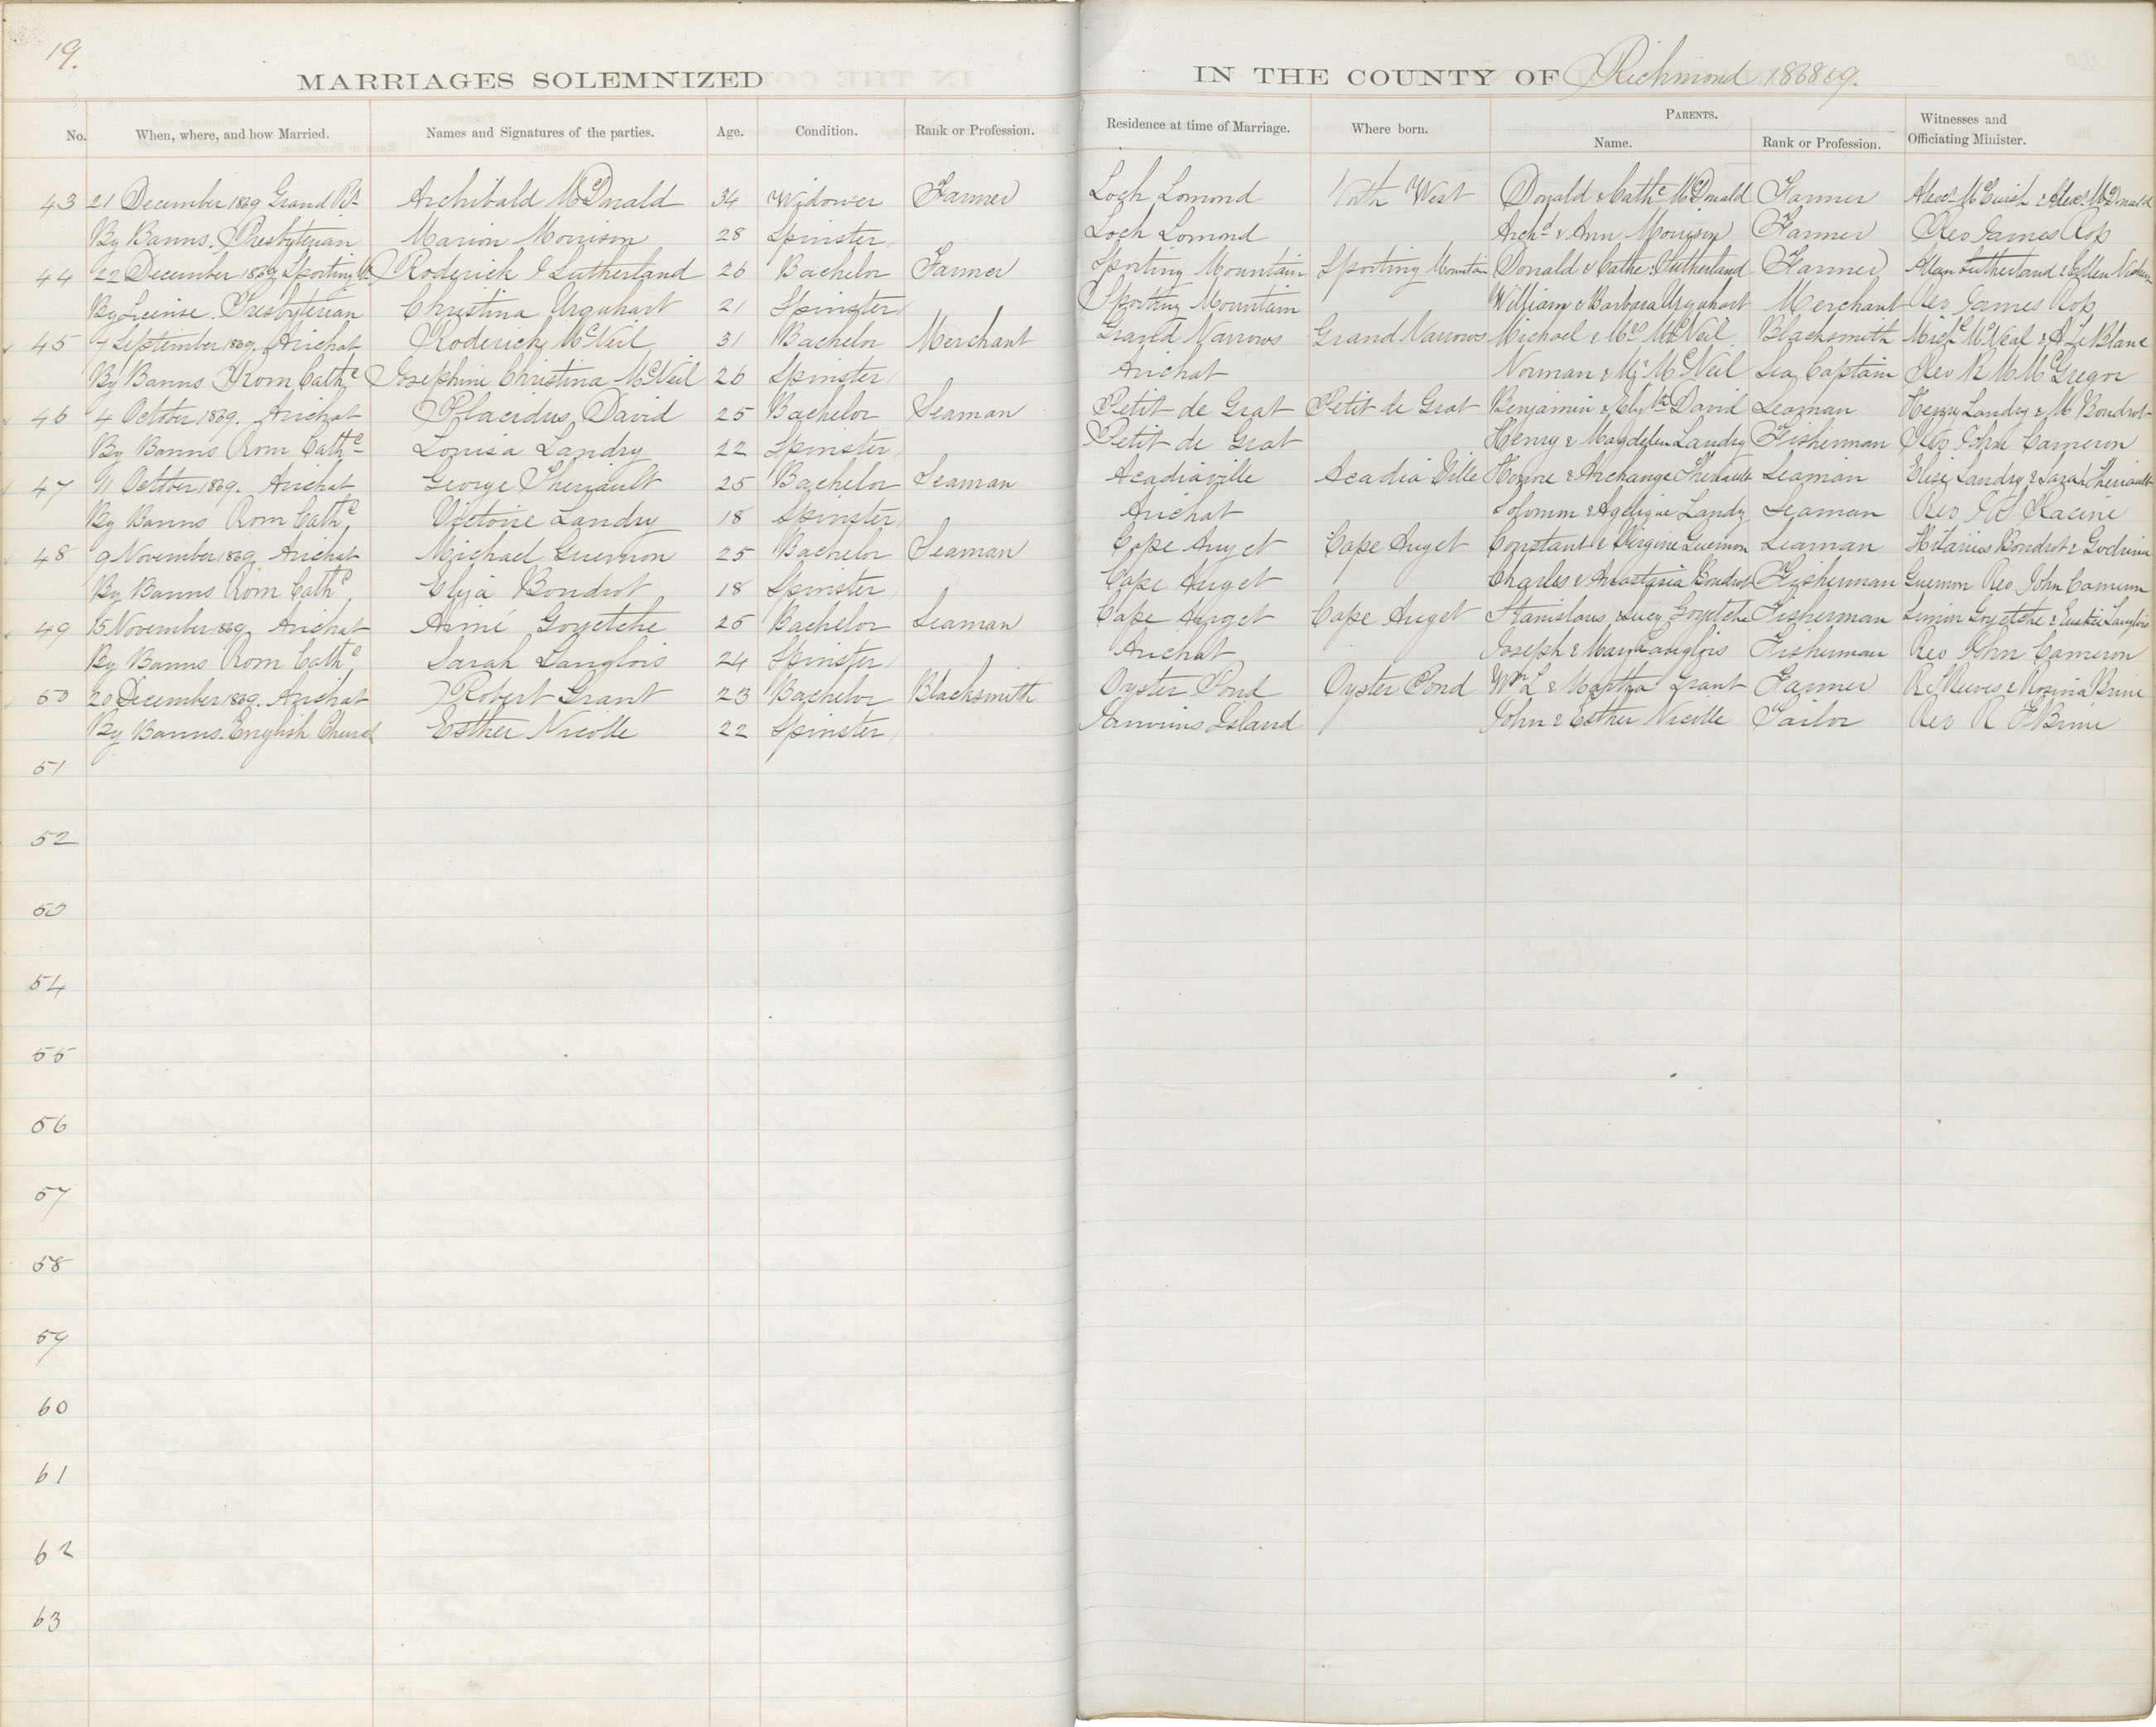 19.
MARRIAGES SOLEMNIZED IN THE COUNTY OF Richmond 1868 69.
No. When, where, and how Married. Names and Signatures of the parties. Age. Condition. Rank or Profession. Residence at time of Marriage. Where born. PARENTS. Name. Rank or Profession. Witnesses and Officiating Minister.
43 21 December 1869 Grand Rr Archibald McDonald 34 Widower Farmer Loch Lomond North West Donald & Cathe McDonald Farmer Alexr McCuish & Alexr McDonald
By Banns. Presbyterian Marion Morrison 28 Spinster Loch Lomond Archd & Ann Morrison Farmer Rev James Ross
44 22 December 1869 Sporting Mn Roderick J Sutherland 26 Bachelor Farmer Sporting Mountain Sporting Mountain Donald & Cathe Sutherland Farmer Allan Sutherland & Ellen
By License. Presbyterian Christina Urquhart 21 Spinster Sporting Mountain William & Barbara Urquhart Merchant Rev James Ross
45 7 September 1869. Arichat Roderick McNeil 31 Bachelor Merchant Grand Narrows Grand Narrows Michael & Mrs McNeil Blacksmith Michl McNeal & A LeBlanc
By Banns Rom Cathc Josephine Christina McNeil 26 Spinster Arichat Norman & McNeil Sea Captain Rev R M McGregor
46 4 October 1869. Arichat Placidus David 25 Bachelor Seaman Petit de Grat Petit de Grat Benjamin & Elyth David Seaman Henry Landry & M Boudrot
By Banns Rom Cathc Louisa Landry 22 Spinster Petit de Grat Henry & Magdelen Landry Fisherman Rev John Cameron
47 11 October 1869. Arichat George Theriault 25 Bachelor Seaman Acadiaville Acadia Ville Honore & Archange Theriault Seaman Elise Landry & Sarah Theriault
By Banns Rom Cathc, Victoire Landry 18 Spinster Arichat Solomon & Agelique Landy Seaman Rev Racine
48 9 November 1869. Arichat Michael Guernon 25 Bachelor Seaman Cape Auget Cape Auget Constant & Virgine Guernon Seaman Hilarius Boudrot &
By Banns Rom Cathc, Elija Boudrot 18 Spinster Cape Auget Charles & Anastasia Boudrot Fisherman Guernon Rev John Cameron
49 15 November 1869. Arichat Aimé Goyetche 26 Bachelor Seaman Cape Auget Cape Auget Stanislaus & Lucy Goyetche Fisherman Simon Goyetche & Eustie Langlois
By Banns Rom Cathc, Sarah Langlois 24 Spinster Arichat Joseph & Mary Langlois Fisherman Rev John Cameron
50 20 December 1869. Arichat Robert Grant 23 Bachelor Blacksmith Oyster Pond Oyster Pond Wm L & Martha Grant Farmer R Reeves & Rosina Brine
By Banns. English Church Esther Nicolle 22 Spinster Janvrins Island John & Esther Nicolle Tailor Rev R F Brine
51
52
53
54
55
56
57
58
59
60
61
62
63